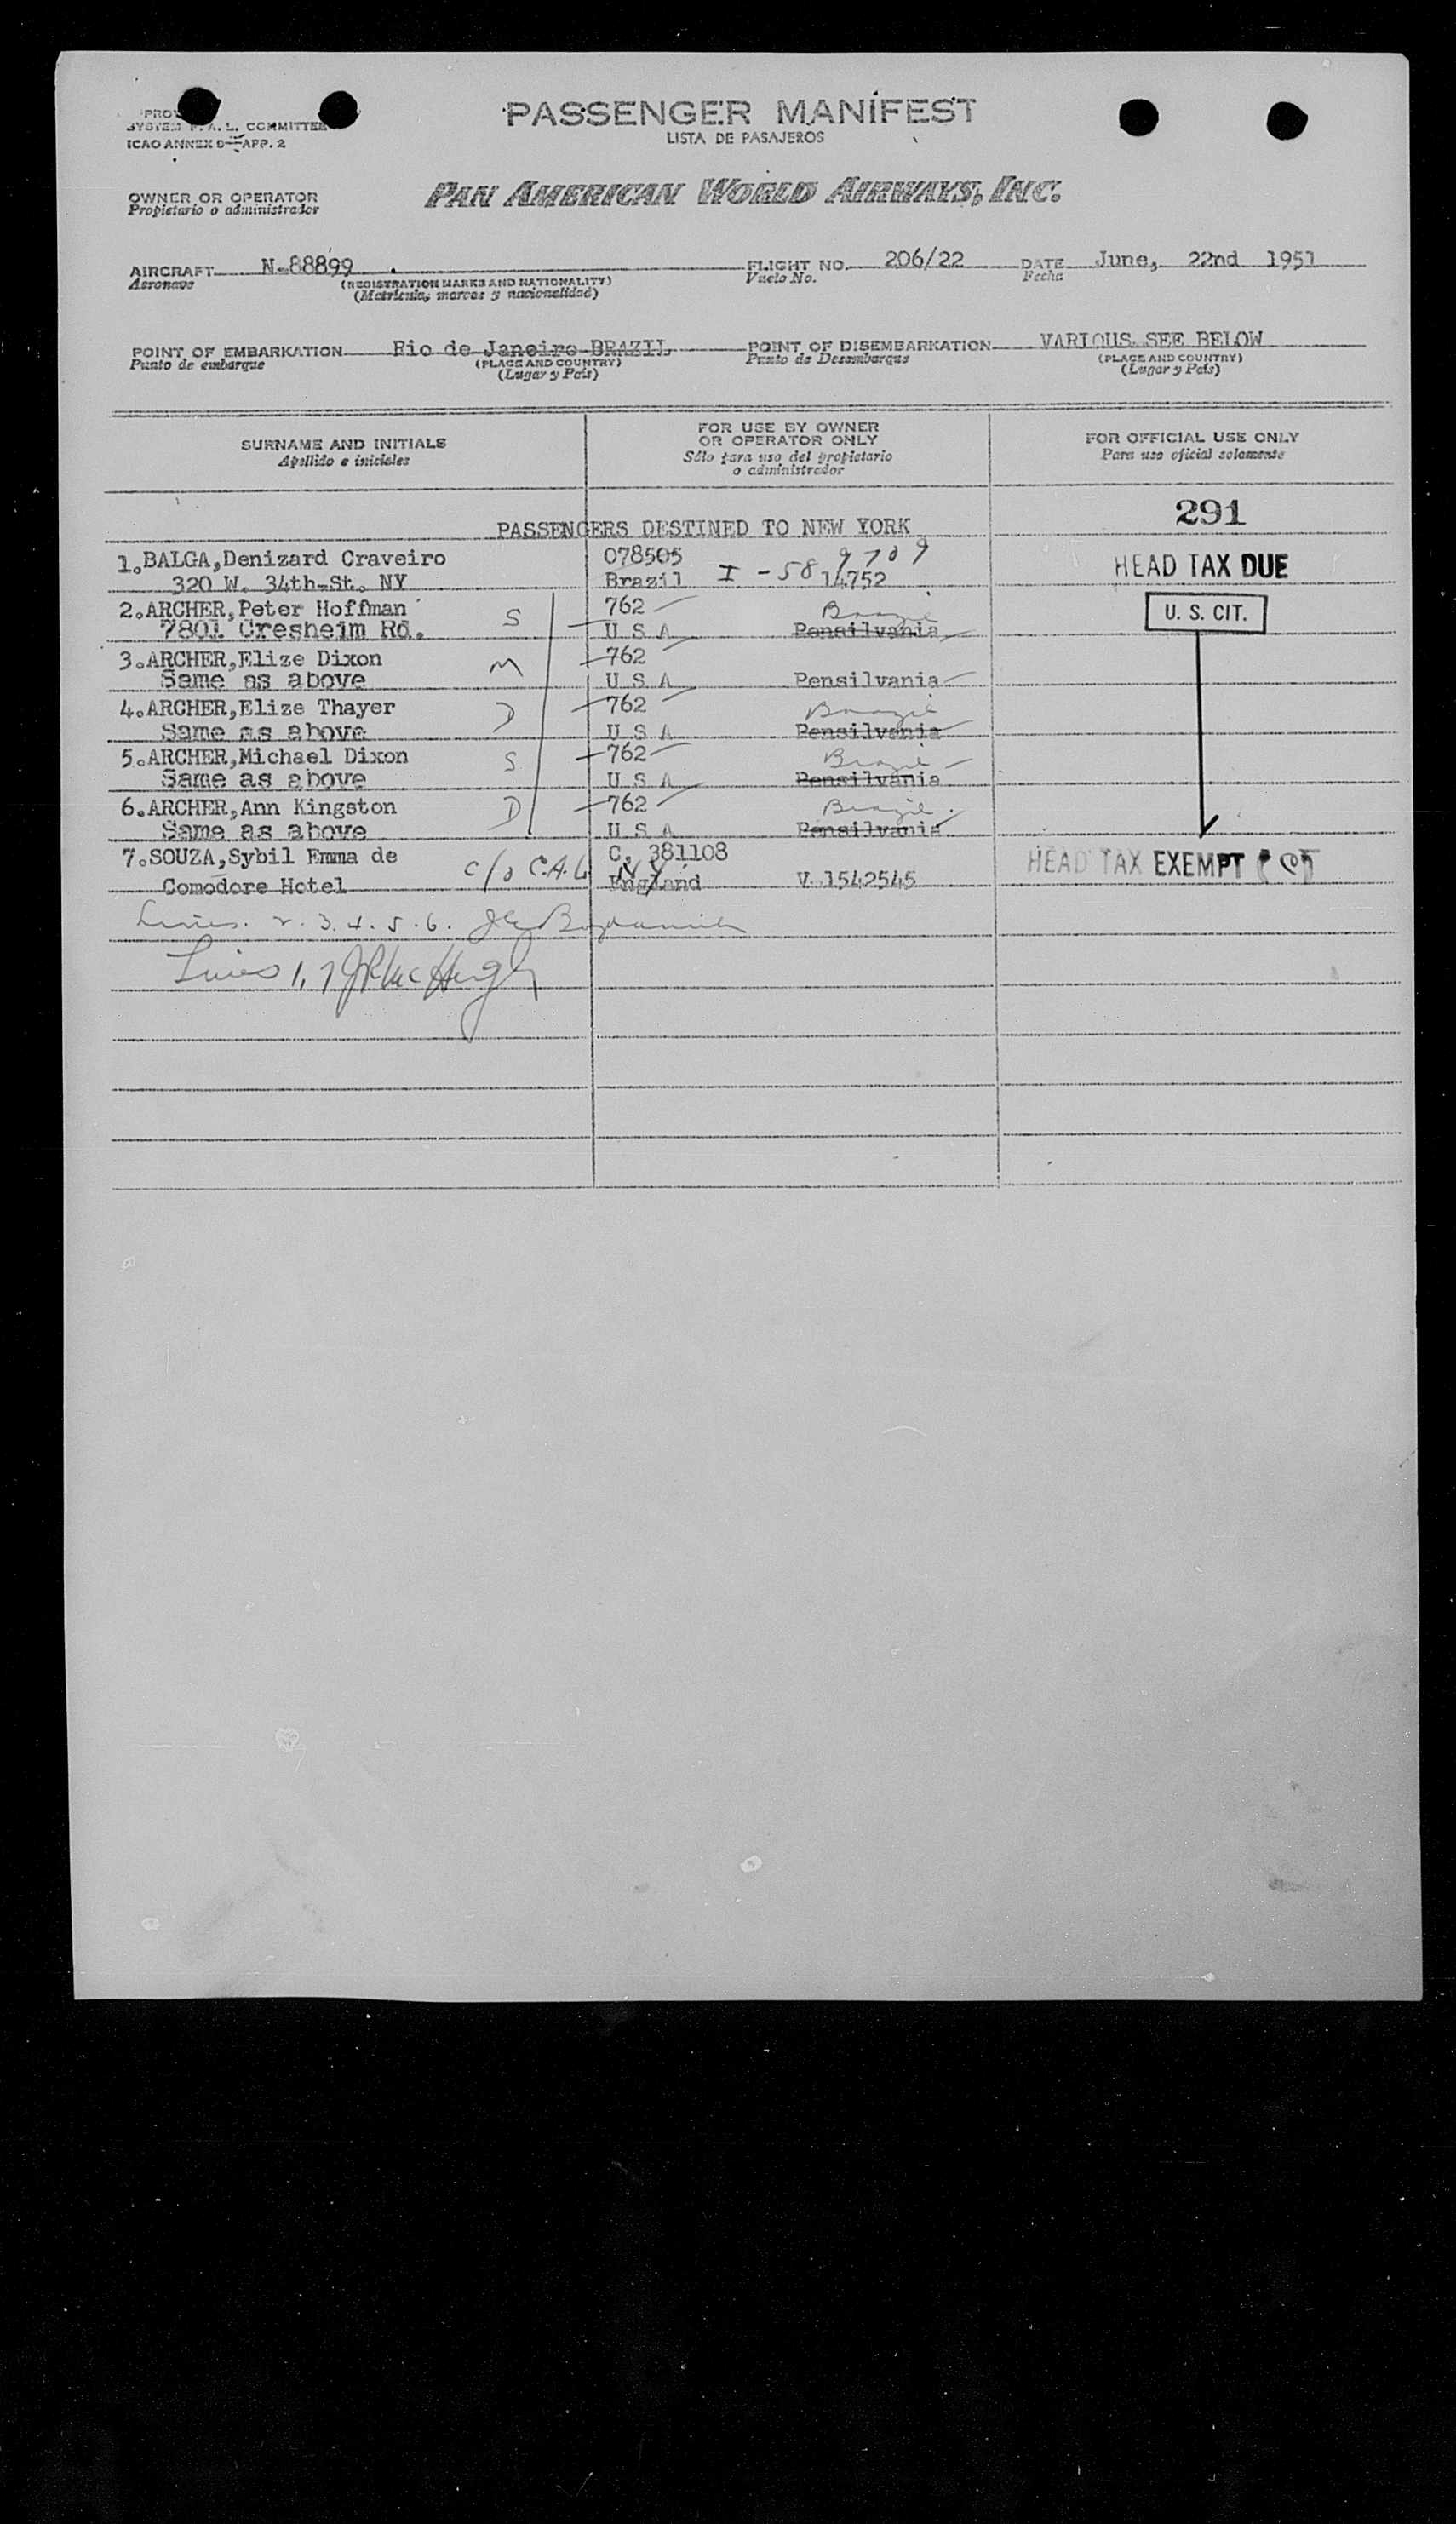 PASSENGER MANIFEST
LISTA DE PASAJEROS
SYSTEM F. A. L. COMMITTEE
ICAO ANNEX 9—APP. 2
OWNER OR OPERATOR
Propietario o administrador
PAN AMERICAN WORLD AIRWAYS, INC.
AIRCRAFT N-88899 FLIGHT NO. 206/22 DATE June, 22nd 1951
Aeronave (REGISTRATION MARKS AND NATIONALITY) Vuelo No. Fecha
(Matricula, marcas y nacionalidad)
POINT OF EMBARKATION Rio de Janeiro-BRAZIL POINT OF DISEMBARKATION VARIOUS SEE BELOW
Punto de embarque (PLACE AND COUNTRY) Punto de Desembarque (PLACE AND COUNTRY)
(Lugar y País) (Lugar y País)
SURNAME AND INITIALS
Apellido e iniciales
FOR USE BY OWNER
OR OPERATOR ONLY
Sólo para uso del propietario
o administrador
FOR OFFICIAL USE ONLY
Para uso oficial solamente
291
PASSENGERS DESTINED TO NEW YORK
1.BALGA,Denizard Craveiro 078505 HEAD TAX DUE
320 W. 34th-St. NY Brazil I-589709 14752
2.ARCHER,Peter Hoffman S 762 Brazil U. S. CIT.
7801 Cresheim Rd. U S A Pensilvania
3.ARCHER,Elize Dixon M 762
Same as above U S A Pensilvania
4.ARCHER,Elize Thayer D 762 Brazil
Same as above U S A Pensilvania
5.ARCHER,Michael Dixon S 762 Brazil
Same as above U S A Pensilvania
6.ARCHER,Ann Kingston D 762 Brazil
Same as above U S A Pensilvania
7.SOUZA,Sybil Emma de C. 381108 HEAD TAX EXEMPT
Comodore Hotel c/o C.A.L. N.Y. England V 1542545
Lines. 2. 3. 4. 5. 6.
Lines 1, 7 McHugh